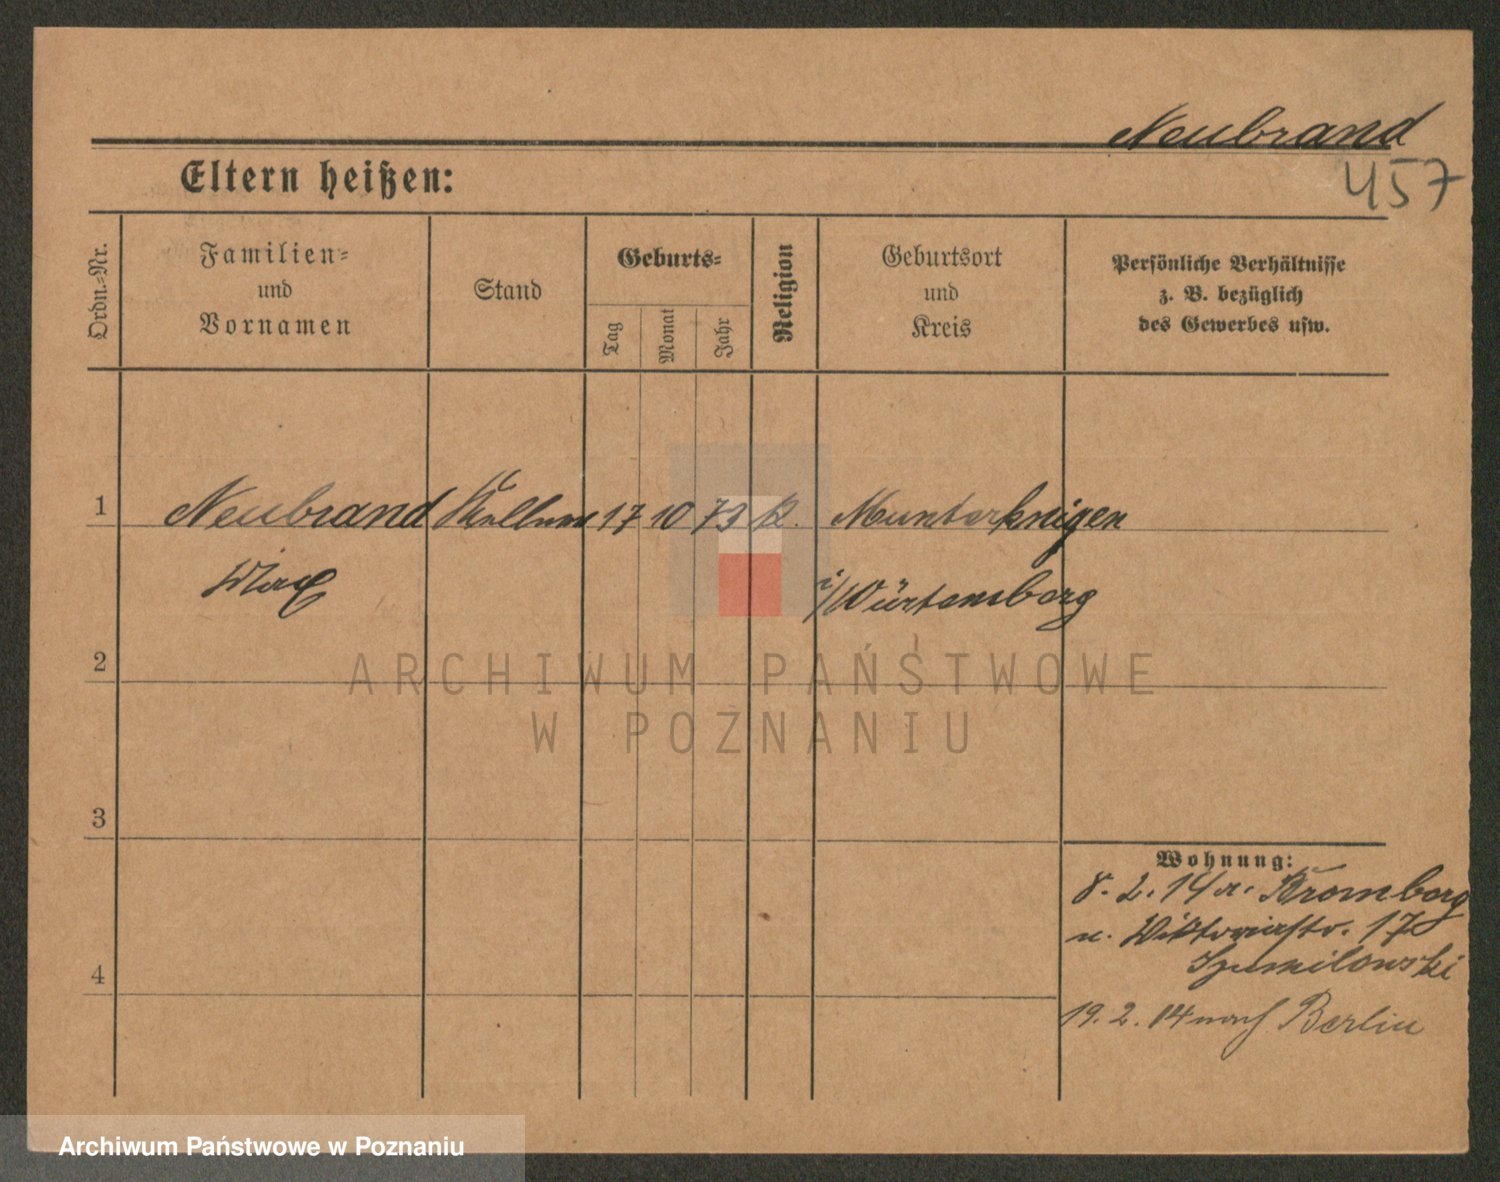 Neubrand
457
Eltern heißen:
Ordn.-Nr.
Familien-
und
Vornamen
Stand
Geburts-
Tag
Monat
Jahr
Religion
Geburtsort
und
Kreis
Persönliche Verhältnisse
z. B. bezüglich
des Gewerbes usw.
1 Neubrand Kellner 17 10 73 k. Munterknigen
Max i/Würtemberg
2
ARCHIWUM PAŃSTWOWE
W POZNANIU
3
Wohnung:
8. 2. 14 a. Bromberg
n. Viktoriastr. 17
Szumilowski
4
19. 2. 14 nach Berlin
Archiwum Państwowe w Poznaniu